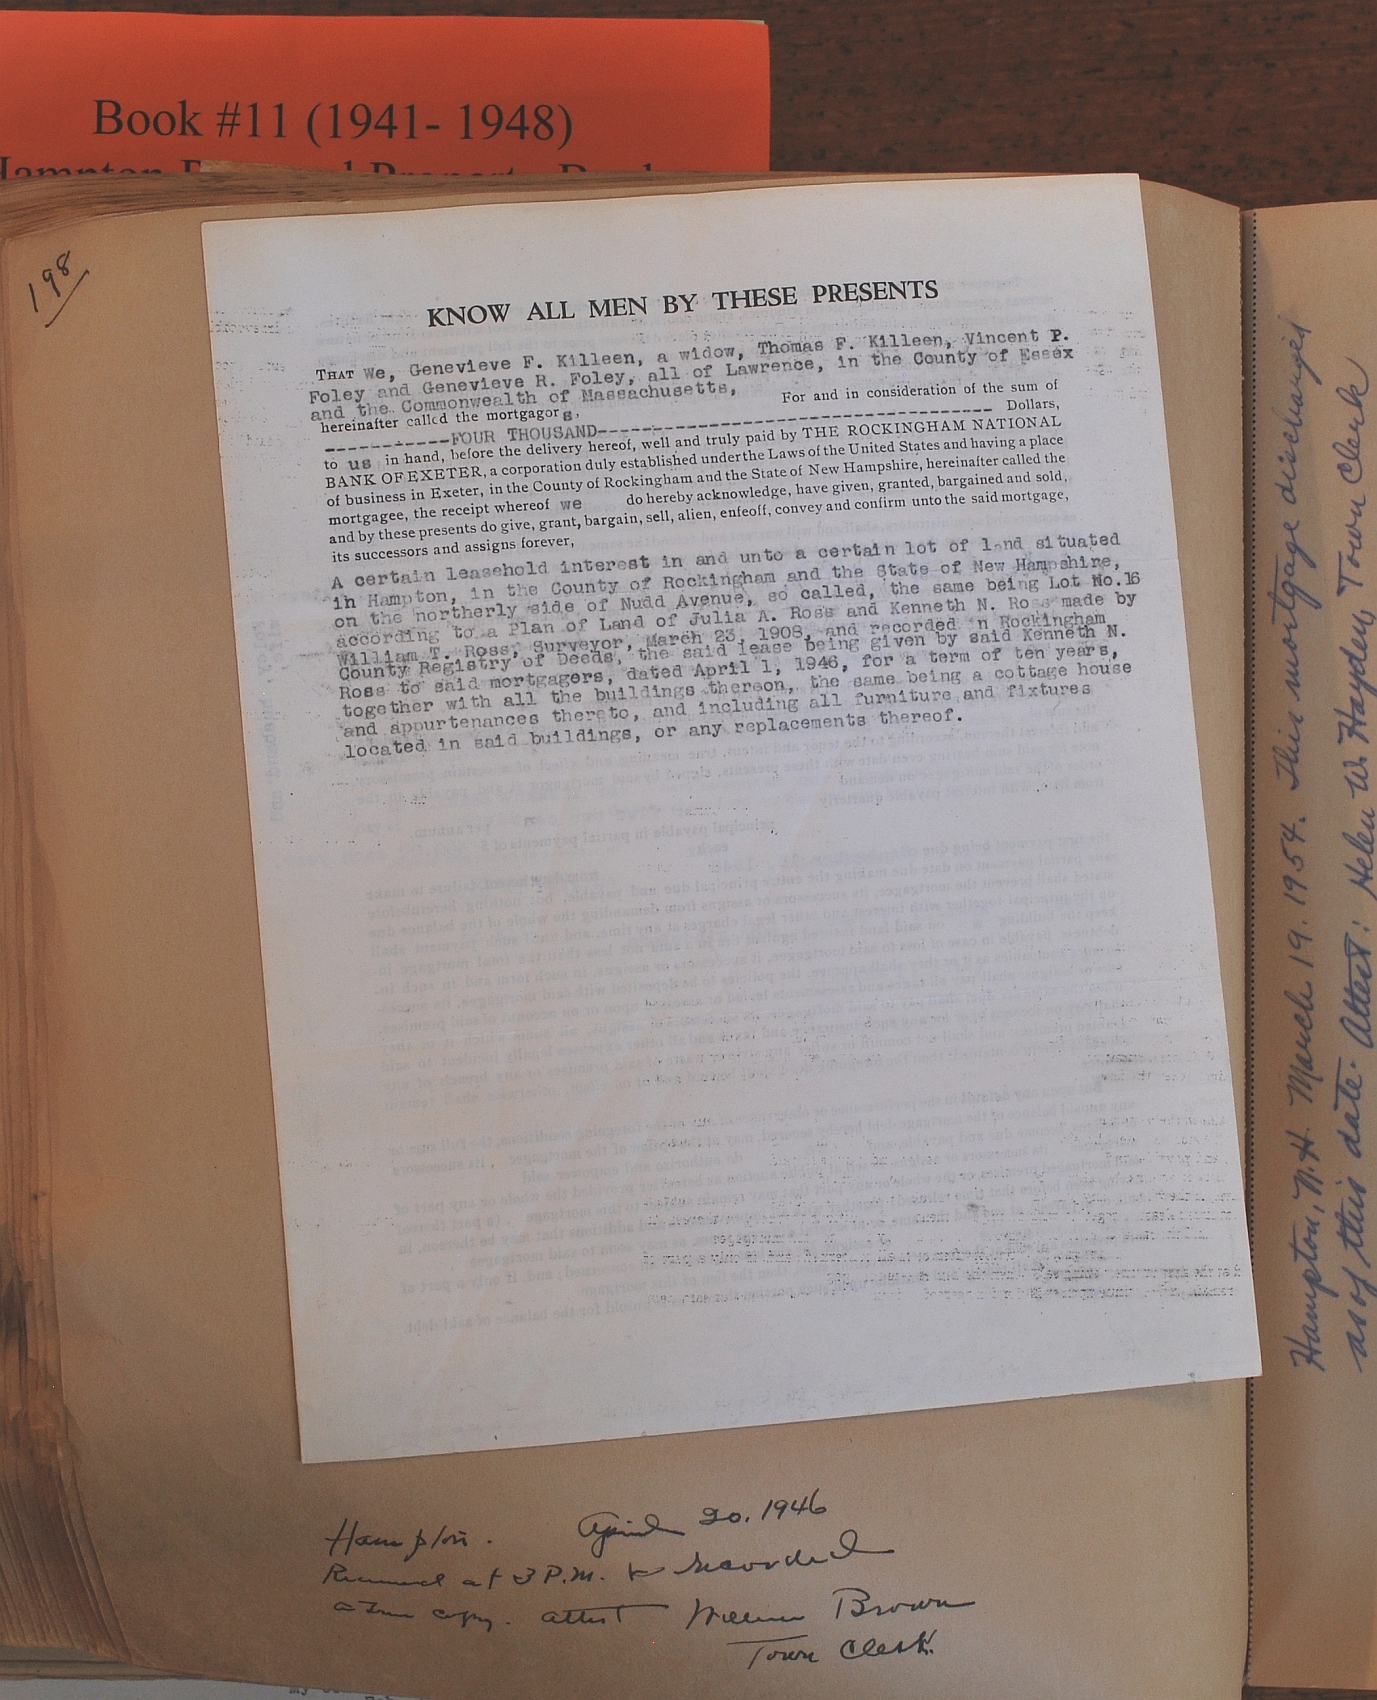 Book #11 (1941- 1948)
198
KNOW ALL MEN BY THESE PRESENTS
THAT We, Genevieve F. Killeen, a widow, Thomas F. Killeen, Vincent P.
Foley and Genevieve R. Foley, all of Lawrence, in the County of Essex
and the Commonwealth of Massachusetts,
hereinafter called the mortgagors, For and in consideration of the sum of
-----------FOUR THOUSAND----------------------------------- Dollars,
to us in hand, before the delivery hereof, well and truly paid by THE ROCKINGHAM NATIONAL
BANK OF EXETER, a corporation duly established under the Laws of the United States and having a place
of business in Exeter, in the County of Rockingham and the State of New Hampshire, hereinafter called the
mortgagee, the receipt whereof we do hereby acknowledge, have given, granted, bargained and sold,
and by these presents do give, grant, bargain, sell, alien, enfeoff, convey and confirm unto the said mortgage,
its successors and assigns forever,
A certain leasehold interest in and unto a certain lot of land situated
in Hampton, in the County of Rockingham and the State of New Hampshire,
on the northerly side of Nudd Avenue, so called, the same being Lot No.16
according to a Plan of Land of Julia A. Ross and Kenneth N. Ross made by
William T. Ross, Surveyor, March 23, 1908, and recorded in Rockingham
County Registry of Deeds, the said lease being given by said Kenneth N.
Ross to said mortgagers, dated April 1, 1946, for a term of ten years,
together with all the buildings thereon, the same being a cottage house
and appurtenances thereto, and including all furniture and fixtures
located in said buildings, or any replacements thereof.
Hampton. April 20. 1946
Received at 3 P.M. & recorded
a True copy. attest William Brown
Town Clerk.
Hampton, N.H. March 19. 1954. This mortgage discharged
as of this date. Attest: Helen W. Hayden, Town Clerk